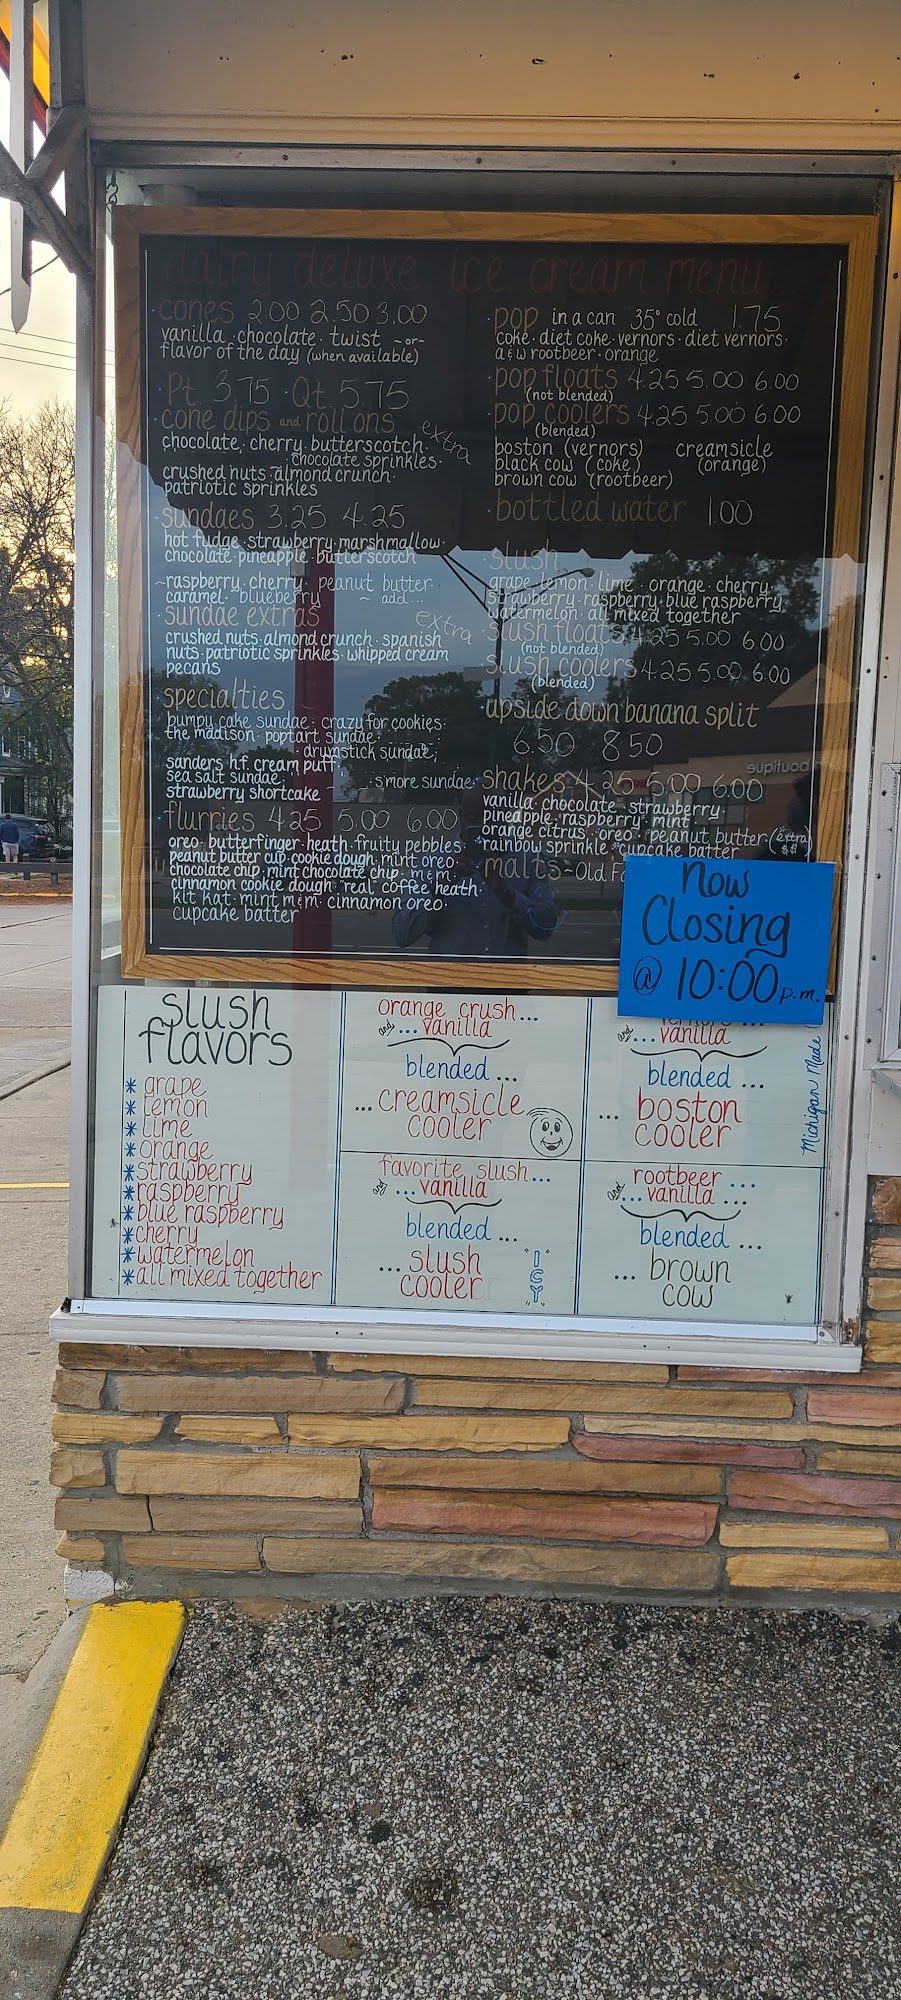 dairy deluxe ice cream menu
cones 2.00 2.50 3.00
vanilla · chocolate · twist ~or~
flavor of the day (when available)
· Pt. 3.75 · Qt. 5.75
cone dips and roll ons
extra
chocolate · cherry · butterscotch ·
chocolate sprinkles ·
crushed nuts · almond crunch ·
patriotic sprinkles
sundaes 3.25 4.25
hot fudge · strawberry · marshmallow ·
chocolate · pineapple · butterscotch
~raspberry · cherry · peanut butter ·
caramel · blueberry ~ add...
sundae extras
extra
crushed nuts · almond crunch · spanish
nuts · patriotic sprinkles · whipped cream
pecans
specialties
bumpy cake sundae · crazy for cookies ·
the madison · poptart sundae ·
drumstick sundae ·
sanders h.f. cream puff ·
sea salt sundae · s'more sundae ·
strawberry shortcake
flurries 4.25 5.00 6.00
oreo · butterfinger · heath · fruity pebbles ·
peanut butter cup · cookie dough · mint oreo ·
chocolate chip · mint chocolate chip · m&m ·
cinnamon cookie dough · "real" coffee heath ·
kit kat · mint m&m · cinnamon oreo ·
cupcake batter
· pop in a can 35° cold 1.75
coke · diet coke · vernors · diet vernors ·
a&w rootbeer · orange
· pop floats 4.25 5.00 6.00
(not blended)
· pop coolers 4.25 5.00 6.00
(blended)
boston (vernors) creamsicle
black cow (coke) (orange)
brown cow (rootbeer)
· bottled water 1.00
· slush
grape · lemon · lime · orange · cherry ·
strawberry · raspberry · blue raspberry ·
watermelon · all mixed together
· slush floats 4.25 5.00 6.00
(not blended)
· slush coolers 4.25 5.00 6.00
(blended)
· upside down banana split
6.50 8.50
· shakes 4.25 5.00 6.00
vanilla · chocolate · strawberry ·
pineapple · raspberry · mint ·
orange citrus · oreo · peanut butter · (extra $$)
*rainbow sprinkle *cupcake batter
· malts ~ Old Fa
boutique
now
Closing
@ 10:00 p.m.
slush
flavors
* grape
* lemon
* lime
* orange
* strawberry
* raspberry
* blue raspberry
* cherry
* watermelon
* all mixed together
orange crush...
and ... vanilla
blended ...
... creamsicle
cooler
and ... vanilla
blended ...
... boston
cooler
Michigan Made
favorite slush...
and ... vanilla
blended ...
... slush
cooler
"ICY"
rootbeer ...
and ... vanilla ...
blended ...
... brown
cow